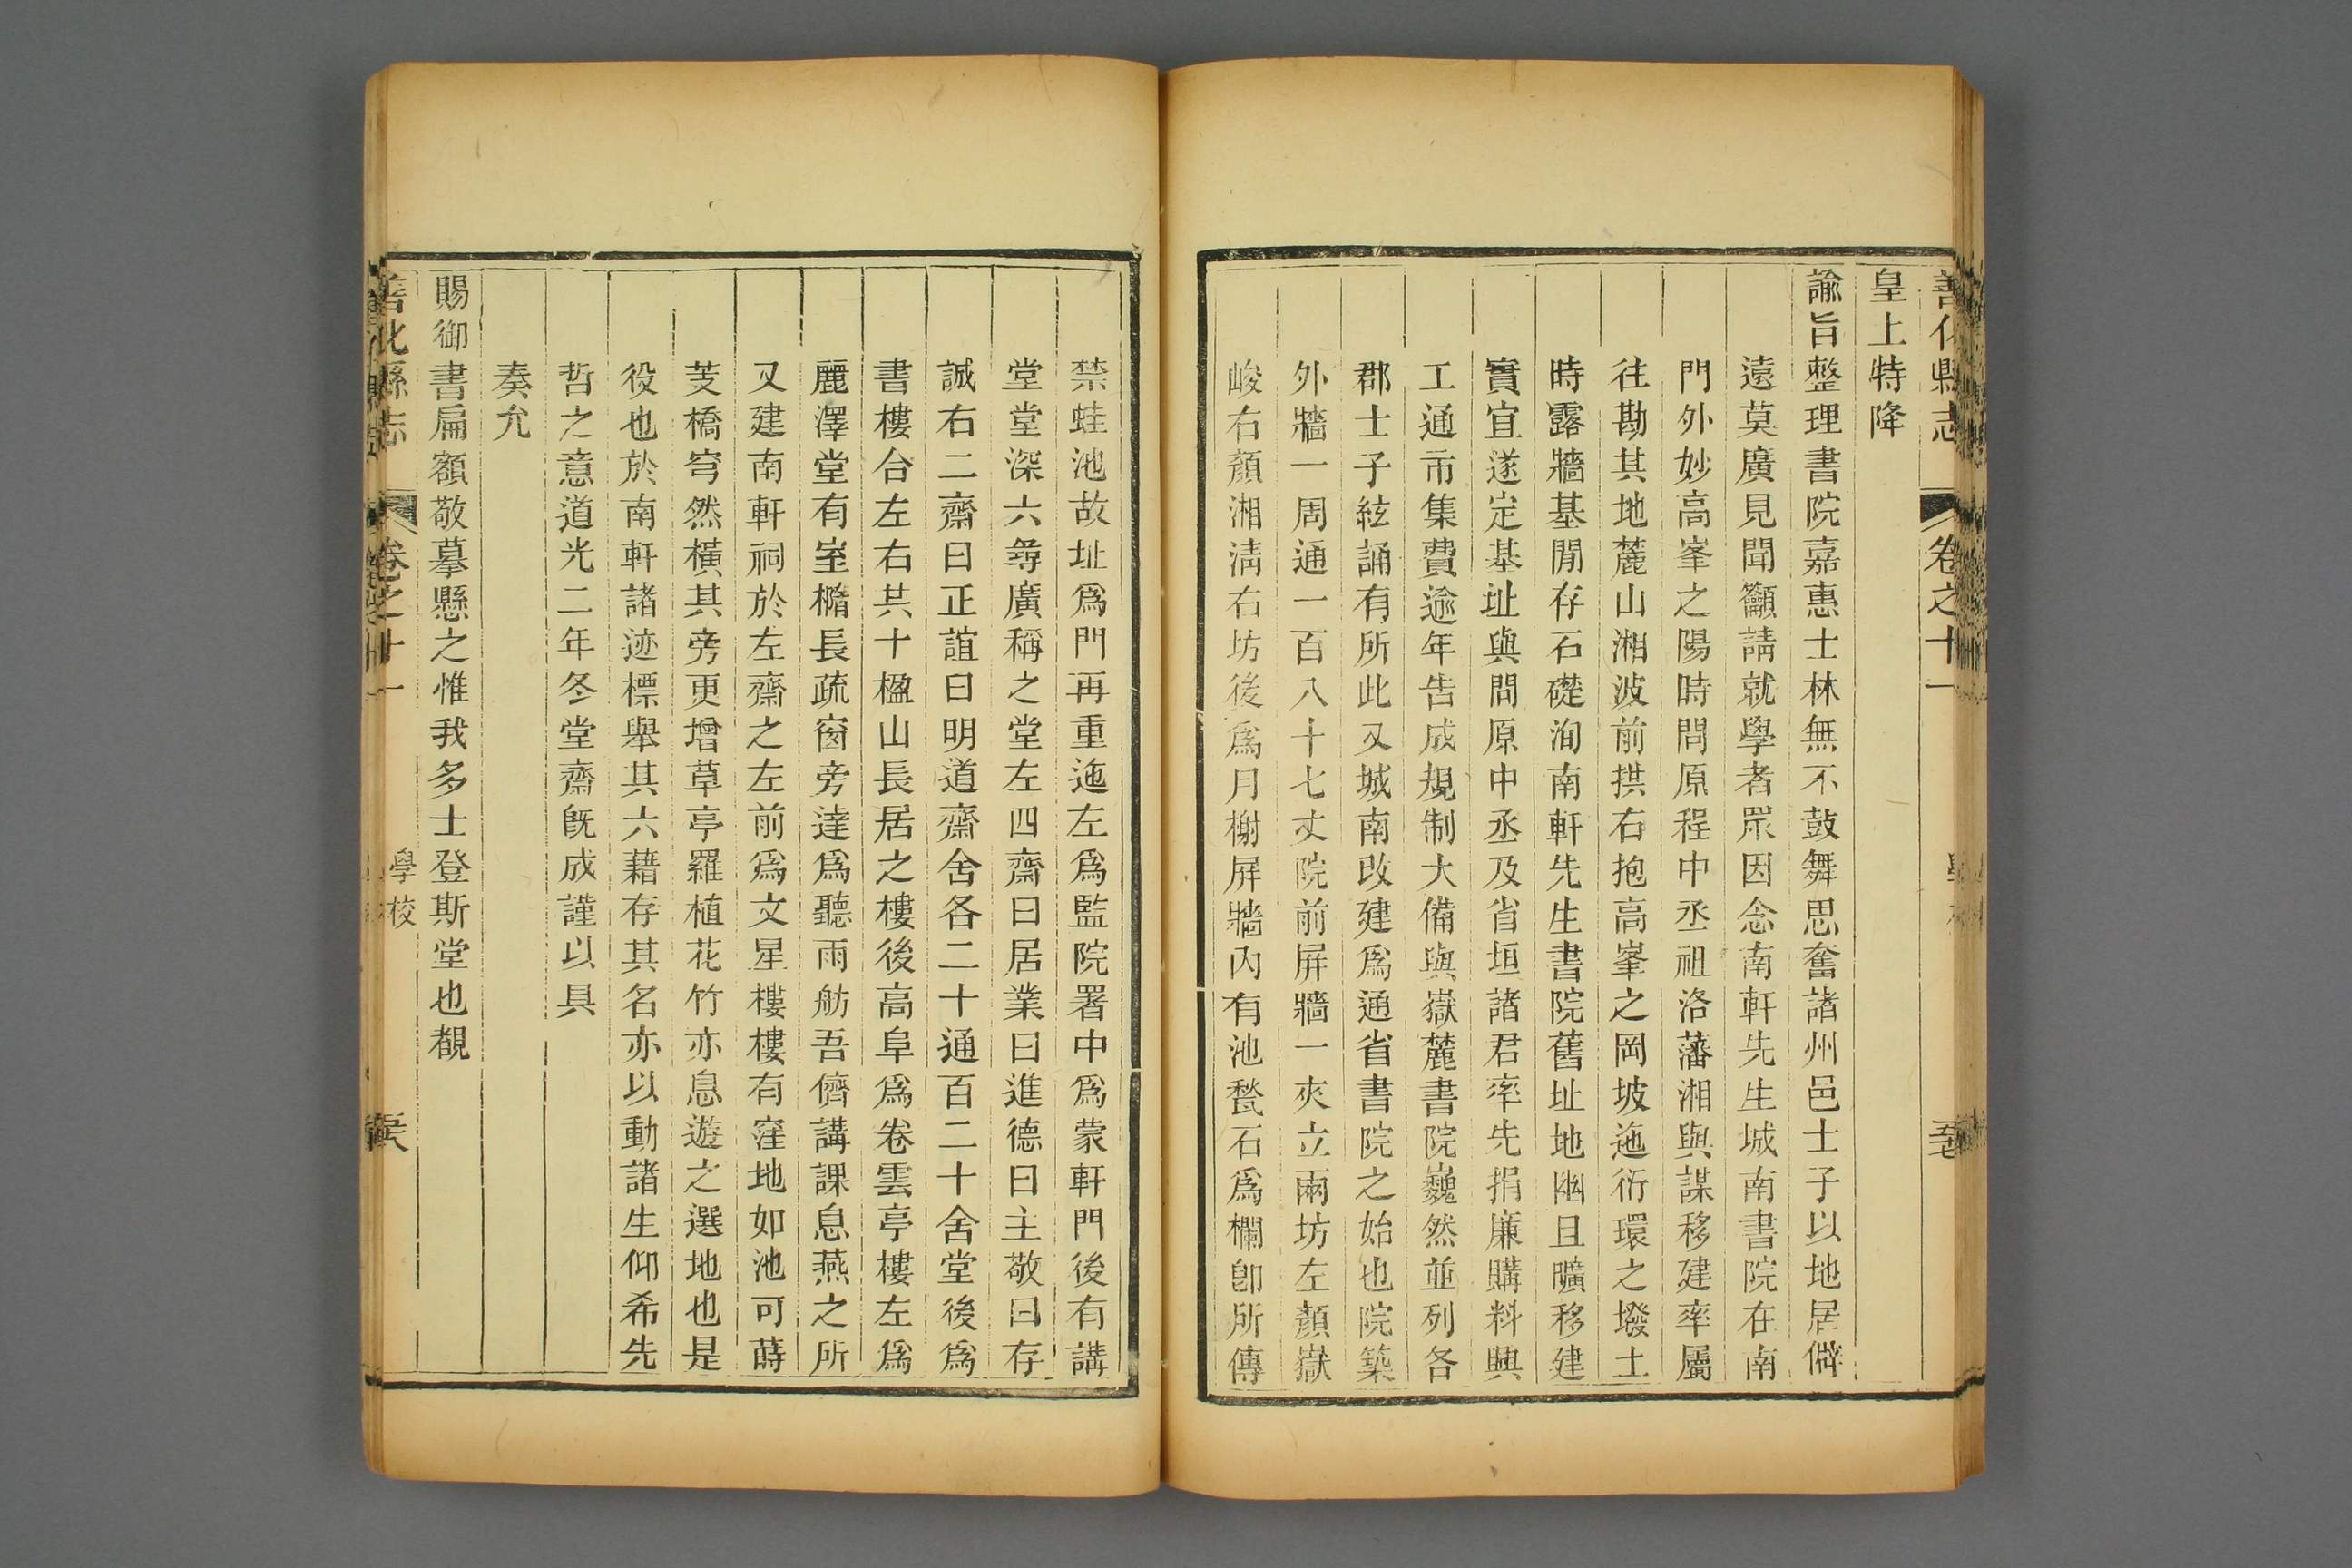 善化縣志 卷之十一
皇上特降
諭旨整理書院嘉惠士林無不鼓舞思奮諸州邑士子以地居僻
遠莫廣見聞籲請就學者眾因念南軒先生城南書院在南
門外妙高峯之陽時問原程中丞祖洛藩湘與謀移建率屬
往勘其地麓山湘波前拱右抱高峯之岡坡迤衍環之墢土
時露牆基閒存石礎洵南軒先生書院舊址地幽且曠移建
實宜遂定基址與問原中丞及省垣諸君率先捐廉購料興
工通市集費逾年告成規制大備與嶽麓書院巍然並列各
郡士子絃誦有所此又城南改建為通省書院之始也院築
外牆一周通一百八十七丈院前屏牆一夾立兩坊左顏嶽
峻右顏湘淸右坊後為月榭屏牆內有池甃石為欄卽所傳
禁蛙池故址為門再重迤左為監院署中為蒙軒門後有講
堂堂深六尋廣稱之堂左四齋曰居業曰進德曰主敬曰存
誠右二齋曰正誼曰明道齋舍各二十通百二十舍堂後為
書樓合左右共十楹山長居之樓後高阜為卷雲亭樓左為
麗澤堂有室櫩長疏窗旁達為聽雨舫吾儕講課息燕之所
又建南軒祠於左齋之左前為文星樓樓有窪地如池可蒔
芰橋穹然橫其旁更增草亭羅植花竹亦息遊之選地也是
役也於南軒諸迹標舉其六藉存其名亦以動諸生仰希先
哲之意道光二年冬堂齋旣成謹以具
奏允
賜御書扁額敬摹懸之惟我多士登斯堂也覩
善化縣志 卷之十一 學校